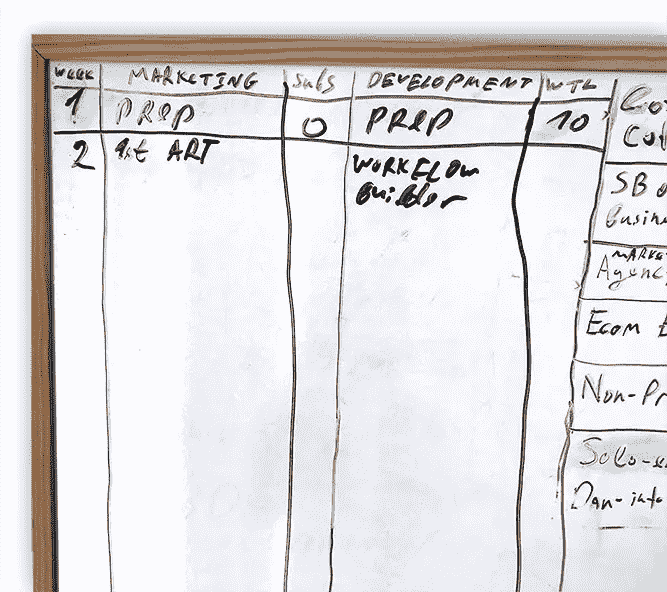 WEEK MARKETING SubS DEVELOPMENT WTL
1 PREP 0 PREP 10
2 1st ART WORKFLOW
Builder
Co
Cov
SB o
Busin
MARKE
Agenc
Ecom E
Non-Pr
Solo-e